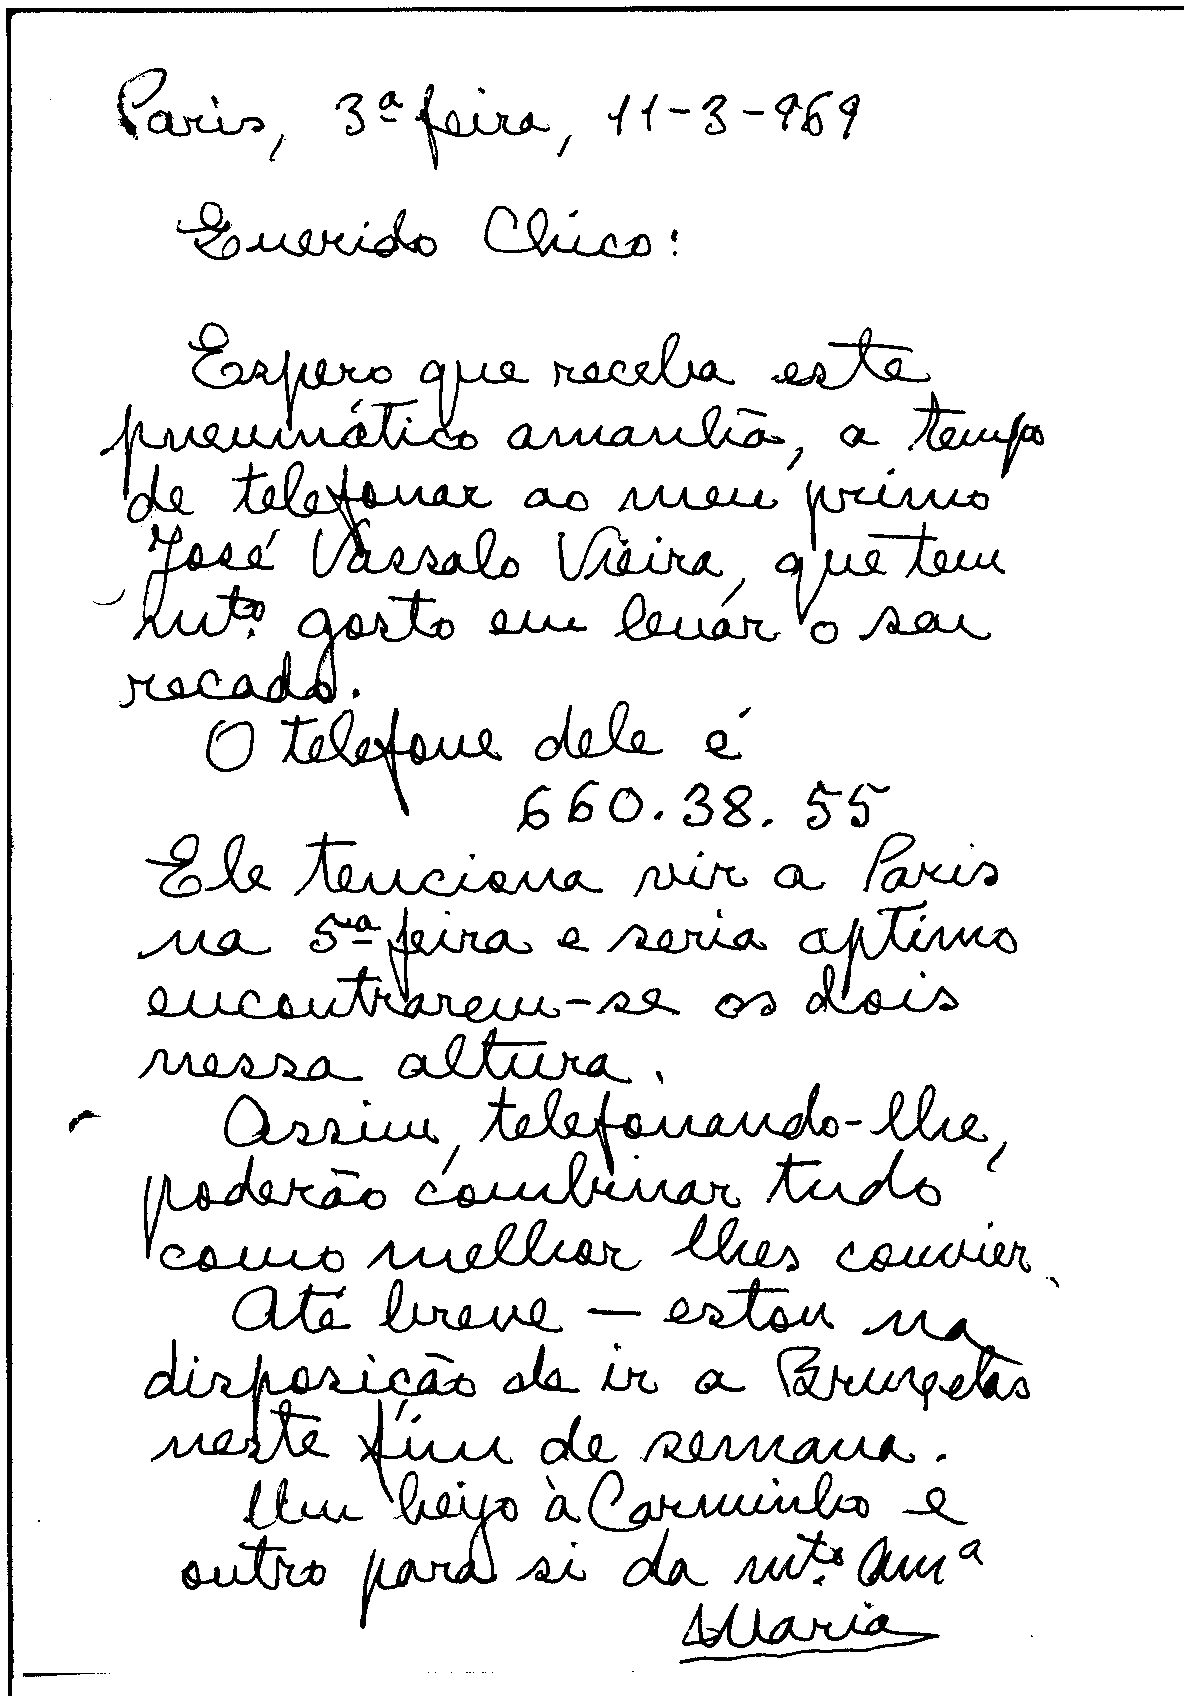 Paris, 3ª feira, 11-3-969
Querido Chico:
Espero que receba este
pneumático amanhã, a tempo
de telefonar ao meu primo
José Vassalo Vieira, que tem
mtº. gosto em levar o seu
recado.
O telefone dele é
660.38.55
Ele tenciona vir a Paris
na 5ª feira e seria óptimo
encontrarem-se os dois
nessa altura.
Assim, telefonando-lhe,
poderão combinar tudo
como melhor lhes convier.
Até breve — estou na
disposição de ir a Bruxelas
neste fim de semana.
Um beijo à Carminho e
outro para si da mtº. Amª
Maria